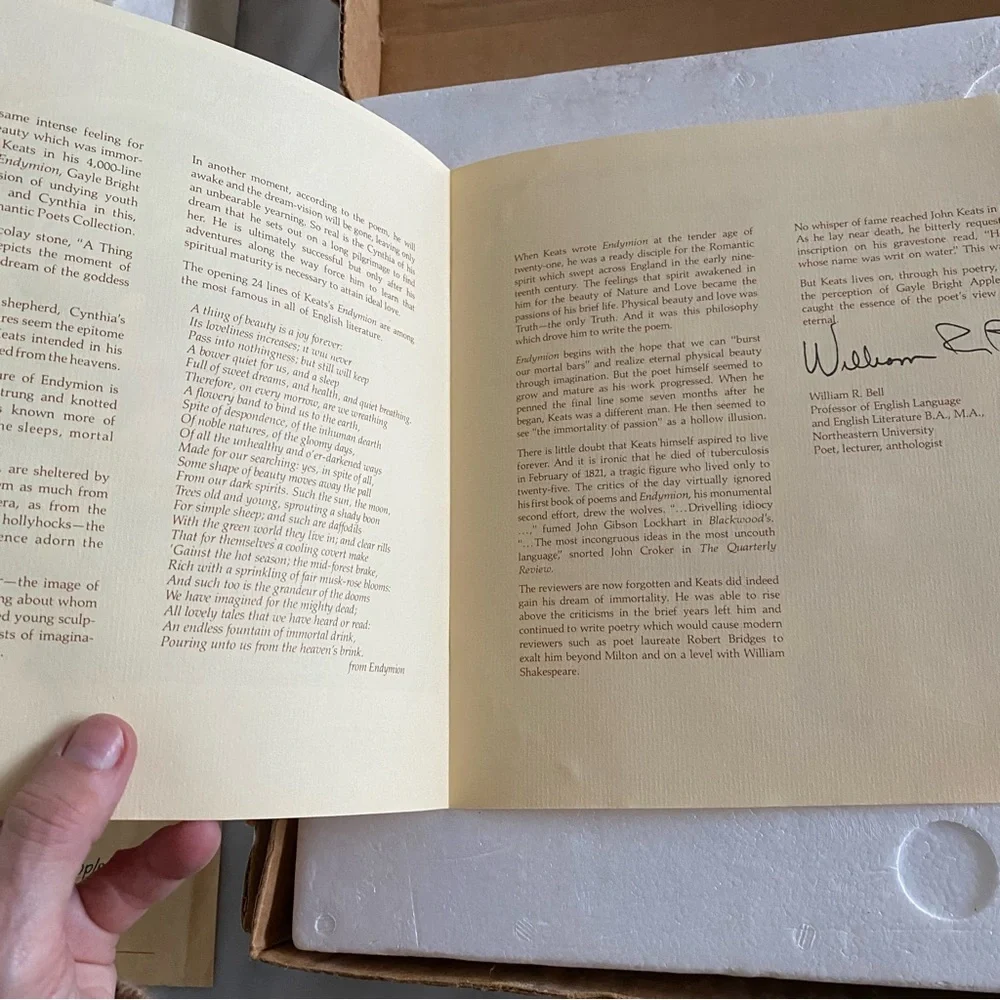 same intense feeling for
auty which was immor-
Keats in his 4,000-line
Endymion, Gayle Bright
sion of undying youth
and Cynthia in this,
mantic Poets Collection.
colay stone, "A Thing
epicts the moment of
dream of the goddess
shepherd, Cynthia's
res seem the epitome
eats intended in his
ed from the heavens.
ure of Endymion is
trung and knotted
s known more of
he sleeps, mortal
are sheltered by
em as much from
era, as from the
hollyhocks—the
ence adorn the
r—the image of
ng about whom
ed young sculp-
sts of imagina-
In another moment, according to the poem, he will
awake and the dream-vision will be gone, leaving only
an unbearable yearning. So real is the Cynthia of his
dream that he sets out on a long pilgrimage to find
her. He is ultimately successful but only after his
adventures along the way force him to learn that
spiritual maturity is necessary to attain ideal love.
The opening 24 lines of Keats's Endymion are among
the most famous in all of English literature.
A thing of beauty is a joy forever:
Its loveliness increases; it will never
Pass into nothingness; but still will keep
A bower quiet for us, and a sleep
Full of sweet dreams, and health, and quiet breathing.
Therefore, on every morrow, are we wreathing
A flowery band to bind us to the earth,
Spite of despondence, of the inhuman dearth
Of noble natures, of the gloomy days,
Of all the unhealthy and o'er-darkened ways
Made for our searching: yes, in spite of all,
Some shape of beauty moves away the pall
From our dark spirits. Such the sun, the moon,
Trees old and young, sprouting a shady boon
For simple sheep; and such are daffodils
With the green world they live in; and clear rills
That for themselves a cooling covert make
'Gainst the hot season; the mid-forest brake,
Rich with a sprinkling of fair musk-rose blooms:
And such too is the grandeur of the dooms
We have imagined for the mighty dead;
All lovely tales that we have heard or read:
An endless fountain of immortal drink,
Pouring unto us from the heaven's brink.
from Endymion
When Keats wrote Endymion at the tender age of
twenty-one, he was a ready disciple for the Romantic
spirit which swept across England in the early nine-
teenth century. The feelings that spirit awakened in
him for the beauty of Nature and Love became the
passions of his brief life. Physical beauty and love was
Truth—the only Truth. And it was this philosophy
which drove him to write the poem.
Endymion begins with the hope that we can "burst
our mortal bars" and realize eternal physical beauty
through imagination. But the poet himself seemed to
grow and mature as his work progressed. When he
penned the final line some seven months after he
began, Keats was a different man. He then seemed to
see "the immortality of passion" as a hollow illusion.
There is little doubt that Keats himself aspired to live
forever. And it is ironic that he died of tuberculosis
in February of 1821, a tragic figure who lived only to
twenty-five. The critics of the day virtually ignored
his first book of poems and Endymion, his monumental
second effort, drew the wolves. "...Drivelling idiocy
...," fumed John Gibson Lockhart in Blackwood's.
"...The most incongruous ideas in the most uncouth
language," snorted John Croker in The Quarterly
Review.
The reviewers are now forgotten and Keats did indeed
gain his dream of immortality. He was able to rise
above the criticisms in the brief years left him and
continued to write poetry which would cause modern
reviewers such as poet laureate Robert Bridges to
exalt him beyond Milton and on a level with William
Shakespeare.
No whisper of fame reached John Keats in
As he lay near death, he bitterly request
inscription on his gravestone read, "H
whose name was writ on water." This wa
But Keats lives on, through his poetry,
the perception of Gayle Bright Apple
caught the essence of the poet's view
eternal.
William R. B
William R. Bell
Professor of English Language
and English Literature B.A., M.A.,
Northeastern University
Poet, lecturer, anthologist